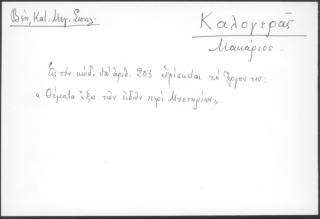 Βέη, Κατ. Μεγ. Σπηλ.
Καλογερᾶς
Μακάριος.
Εἰς τὸν κώδ. ὑπ' ἀριθ. 203 εὑρίσκεται τὸ ἔργον του:
« Θέματα ἔξω τῶν εἰδῶν περὶ Μυστηρίων»